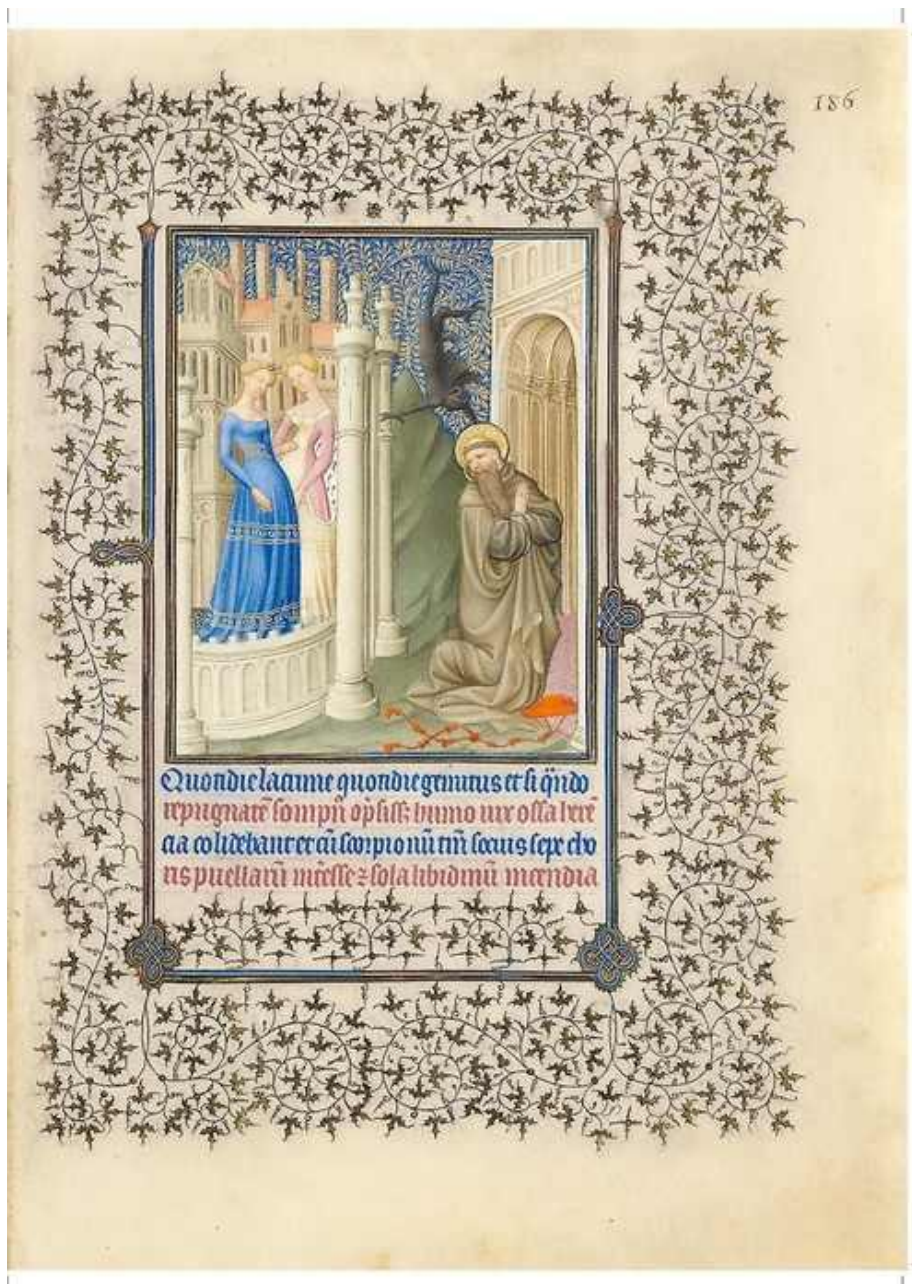 186
Quotidie lacrime quotidie gemitus et si qn̄do
repugnāte sompn̄ op̄siss; humo vix ossa herē
cia colidebant et cū scorpionū tm̄ socius sepe cho
ris puellarū īteresse ⁊ sola libidinū incendia